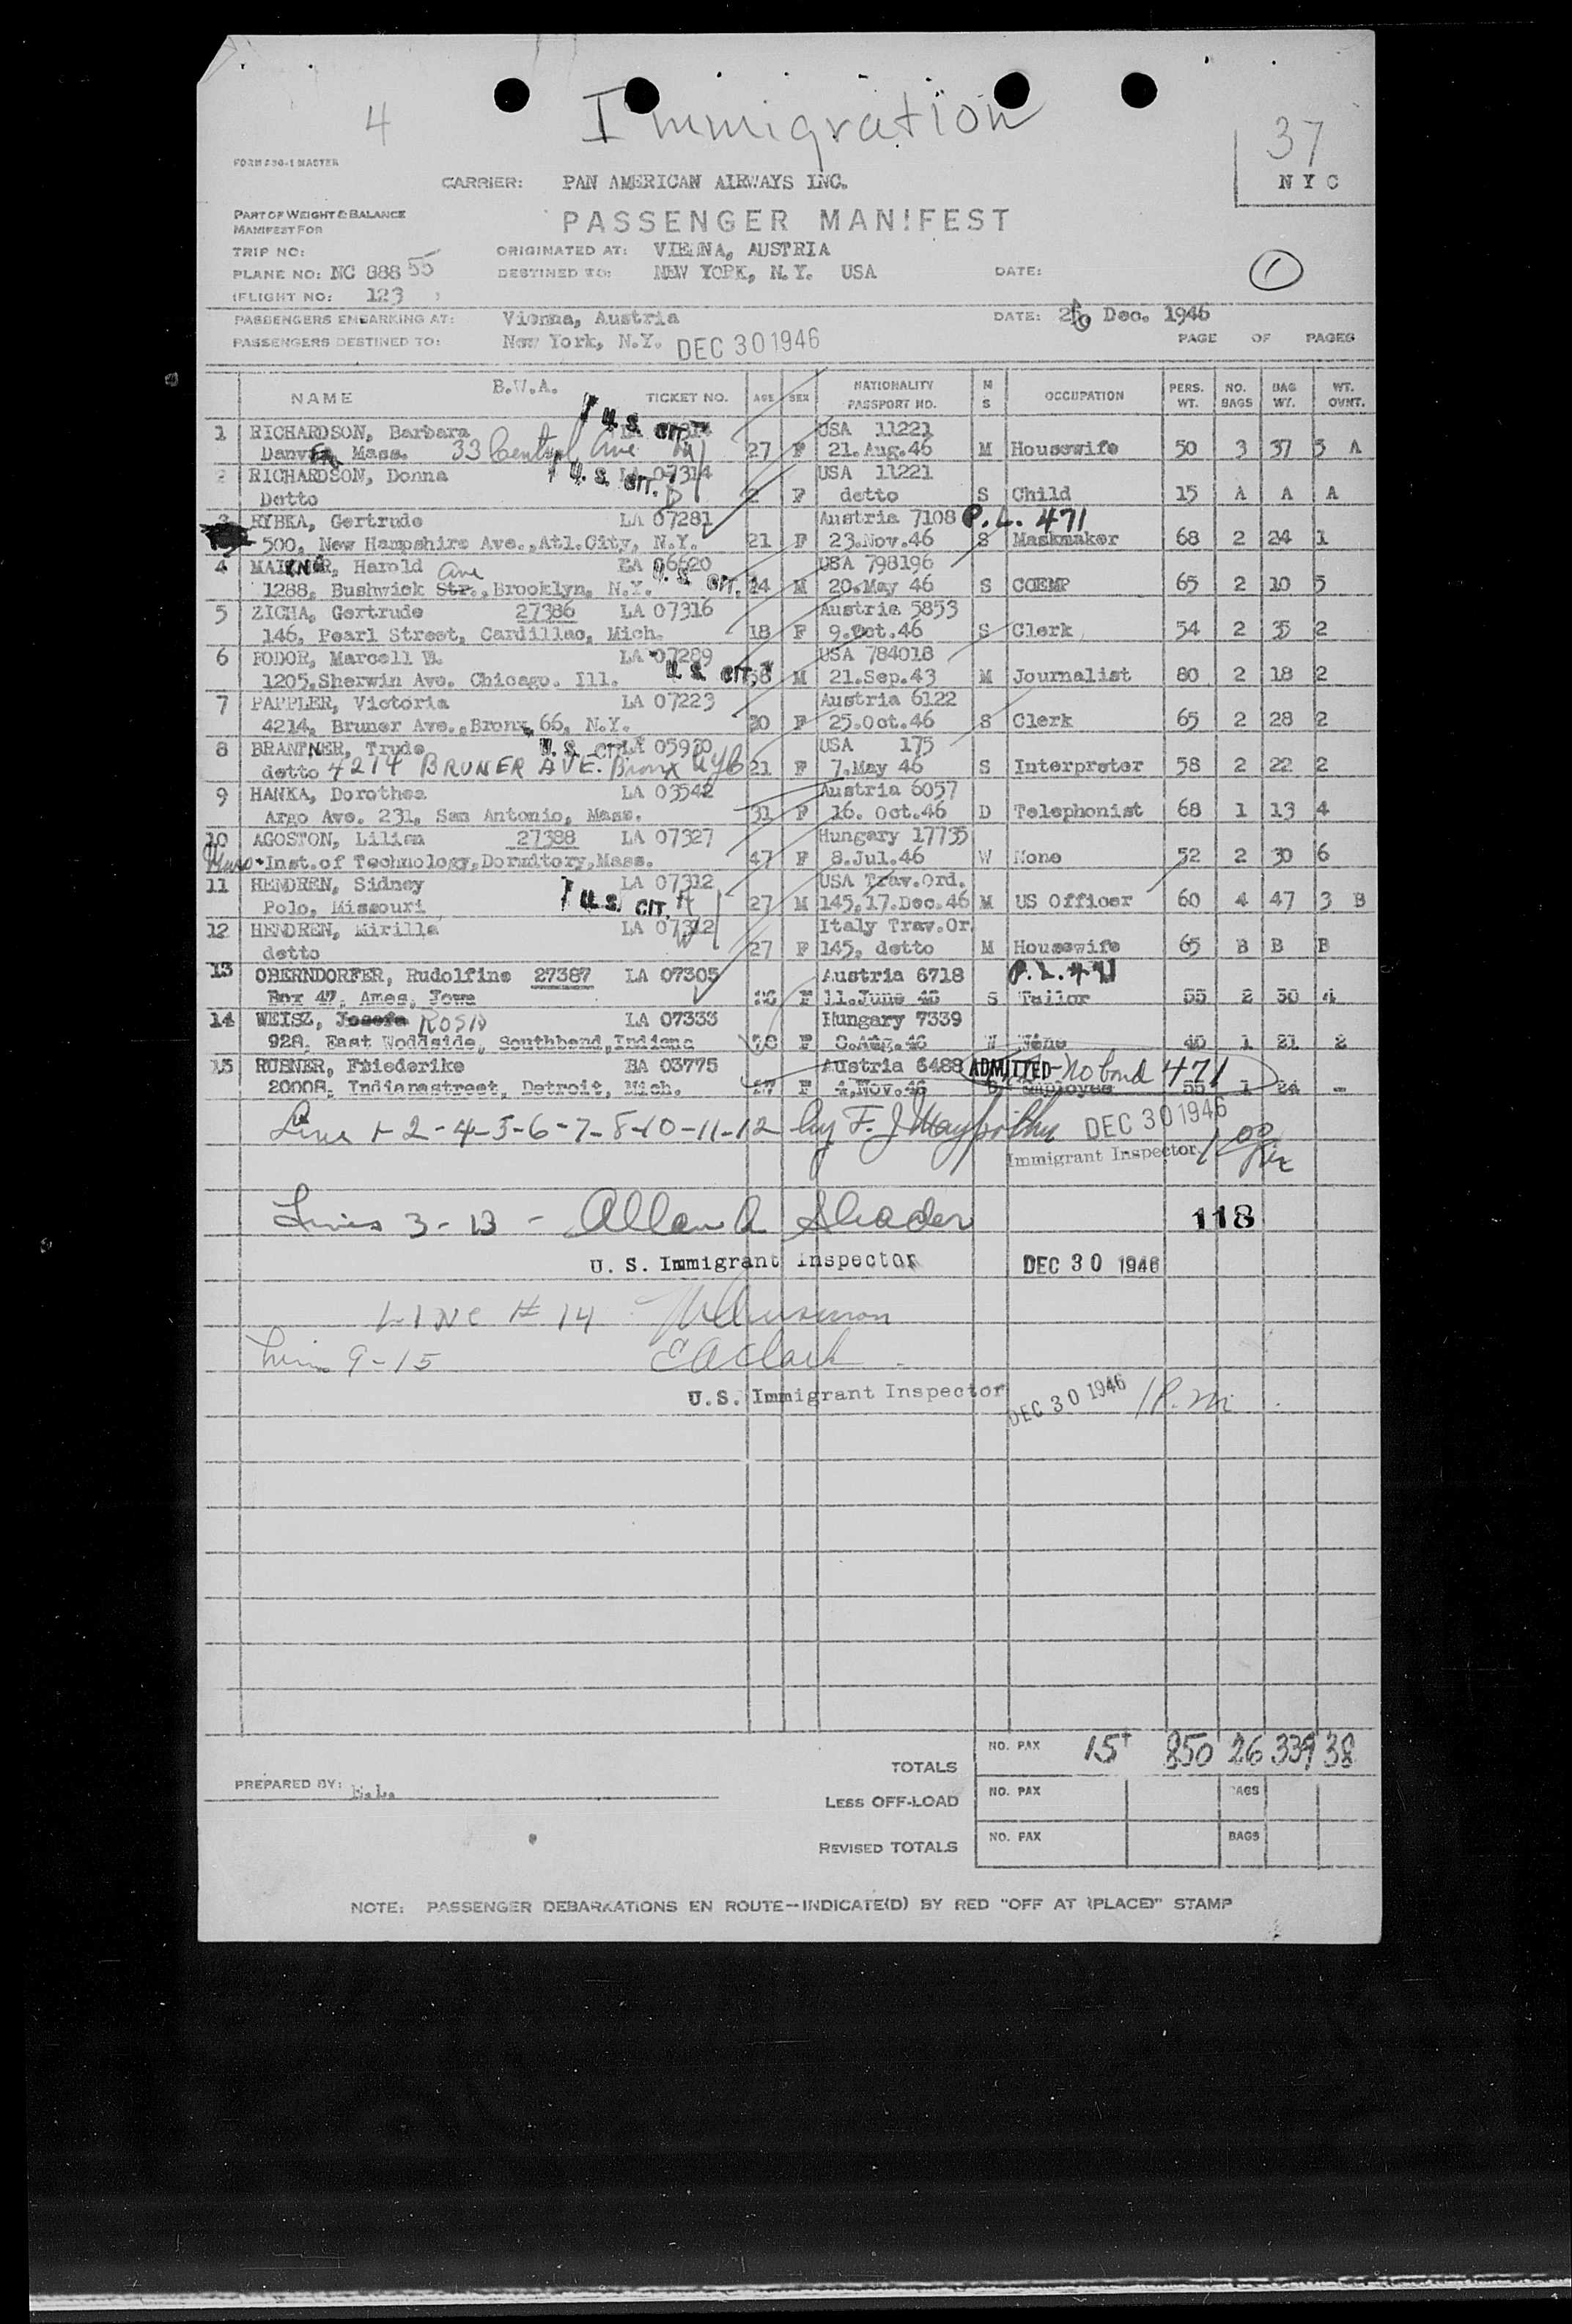 4 Immigration
37
FORM #36-1 MASTER
N Y C
CARRIER: PAN AMERICAN AIRWAYS INC.
PART OF WEIGHT & BALANCE
MANIFEST FOR
PASSENGER MANIFEST
TRIP NO: ORIGINATED AT: VIENNA, AUSTRIA
PLANE NO: NC 88855 DESTINED TO: NEW YORK, N.Y. USA DATE: 1
(FLIGHT NO: 123 )
PASSENGERS EMBARKING AT: Vienna, Austria DATE: Dec. 1946
PASSENGERS DESTINED TO: New York, N.Y. DEC 30 1946 PAGE OF PAGES
B.W.A.
NAME TICKET NO. AGE SEX NATIONALITY PASSPORT NO. M S OCCUPATION PERS. WT. NO. BAGS BAG WT. WT. OVNT.
1 RICHARDSON, Barbara U.S. CIT. USA 11221
Danvers, Mass. 33 Central Ave 27 F 21.Aug.46 M Housewife 50 3 37 5 A
2 RICHARDSON, Donna U.S. CIT. LA 07314 USA 11221
Detto 2 F detto S Child 15 A A A
3 RYBKA, Gertrude LA 07281 Austria 7108 P.L. 471
500, New Hampshire Ave.,Atl.City, N.Y. 21 F 23.Nov.46 S Maskmaker 68 2 24 1
4 Harold Ave EA 06620 U.S. CIT. USA 798196
1288, Bushwick Str., Brooklyn, N.Y. 24 M 20.May 46 S COEMP 65 2 10 5
5 ZICHA, Gertrude 27386 LA 07316 Austria 5853
146, Pearl Street, Cardillac, Mich. 18 F 9.Oct.46 S Clerk 54 2 35 2
6 FODOR, Marcell W. LA 07289 USA 784018
1205,Sherwin Ave. Chicago. Ill. U.S. CIT. M 21.Sep.43 M Journalist 80 2 18 2
7 PAPPLER, Victoria LA 07223 Austria 6122
4214, Bruner Ave.,Bronx, 66, N.Y. 20 F 25.Oct.46 S Clerk 65 2 28 2
8 BRANTNER, Trude U.S. CIT. 05920 USA 175
detto 4214 BRUNER AVE. Bronx 21 F 7.May 46 S Interpreter 58 2 22 2
9 HANKA, Dorothea LA 03542 Austria 6057
Argo Ave. 231, San Antonio, Mass. 31 F 16. Oct.46 D Telephonist 68 1 13 4
10 AGOSTON, Lilian 27388 LA 07327 Hungary 17735
Inst.of Technology,Dormitory,Mass. 47 F 8.Jul.46 W None 52 2 30 6
11 HENDREN, Sidney LA 07312 USA Trav.Ord.
Polo, Missouri U.S. CIT. 27 M 145,17.Dec.46 M US Officer 60 4 47 3 B
12 HENDREN, Mirilla LA 07312 Italy Trav.Or.
detto 27 F 145, detto M Housewife 65 B B B
13 OBERNDORFER, Rudolfine 27387 LA 07305 Austria 6718 P.L. 471
Box 47, Ames, Iowa F 11.June 46 S Tailor 55 2 30 4
14 WEISZ, Josefa ROSA LA 07333 Hungary 7339
928, East Woddside, Southbend,Indiana F 8.Aug.46 W None 40 1 21 2
15 RUBNER, Friederike BA 03775 Austria 6488 ADMITTED-No bond 471
20008, Indianastreet, Detroit, Mich. F 4.Nov.46 Employee 55 1 24 -
Line 1-2-4-5-6-7-8-10-11-12 by F. J. DEC 30 1946
Immigrant Inspector
Lines 3-13 - Allan A Shader 118
U. S. Immigrant Inspector DEC 30 1946
LINE # 14
Lines 9-15 E A Clark
U.S. Immigrant Inspector DEC 30 1946 1 P.m.
TOTALS NO. PAX 15+ 850 26 339 38
PREPARED BY: E.L.
LESS OFF-LOAD NO. PAX BAGS
REVISED TOTALS NO. PAX BAGS
NOTE: PASSENGER DEBARKATIONS EN ROUTE—INDICATE(D) BY RED "OFF AT (PLACE)" STAMP